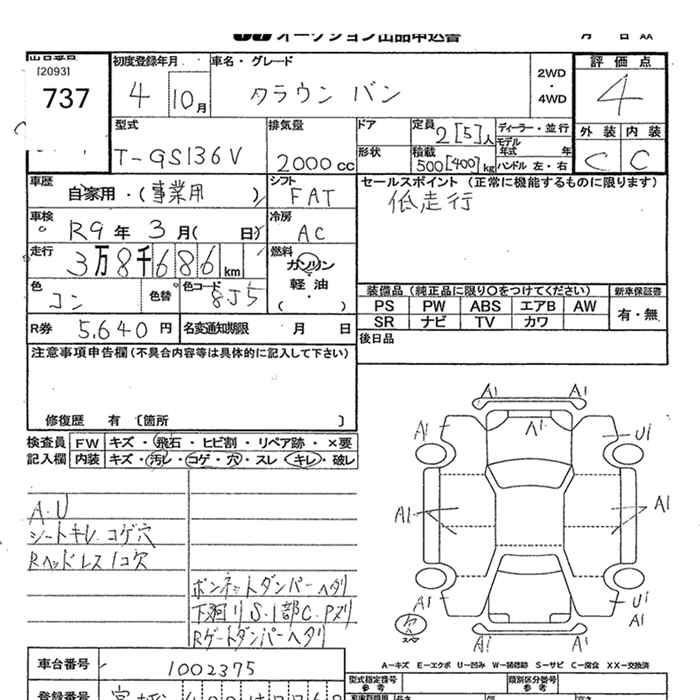 オークション出品申込書 月 日
[2093]
737
初度登録年月 車名・グレード 2WD・4WD 評価点
4 10月 クラウン バン 4
型式 排気量 ドア 定員 2[5]人 ディーラー・並行 外装 内装
T-GS136V 2000cc 形状 積載 500[400]kg モデル年式 年 ハンドル 左・右 C C
車歴 自家用・(事業用) シフト FAT セールスポイント(正常に機能するものに限ります)
車検 R9年3月(日) 冷房 AC 低走行
走行 3万8千686km 燃料 ガソリン 軽油 (・)
色 コン 色替 色コード 8J5
装備品(純正品に限り○をつけてください) 新車保証書
PS PW ABS エアB AW 有・無
SR ナビ TV カワ
R券 5,640円 名変通知期限 月 日 後日品
注意事項申告欄(不具合内容等は具体的に記入して下さい)
修復歴 有 [箇所 ]
検査員 FW キズ・飛石・ヒビ割・リペア跡・×要
記入欄 内装 キズ・汚レ・コゲ・穴・スレ・キレ・破レ
A.U
シートキレ.コゲ穴
Rヘッドレス1コ欠
ボンネットダンパーヘタリ
下廻りS.1部C.Pヌリ
Rゲートダンパーヘタリ
A1 A1
A1 A1 U1
A1 A1
A1 U1
A1
A1 A1
スペア
車台番号 1002375
A−キズ E−エクボ U−凹み W−補修跡 S−サビ C−腐食 XX−交換済
型式指定番号 参考 類別区分番号 参考
登録番号